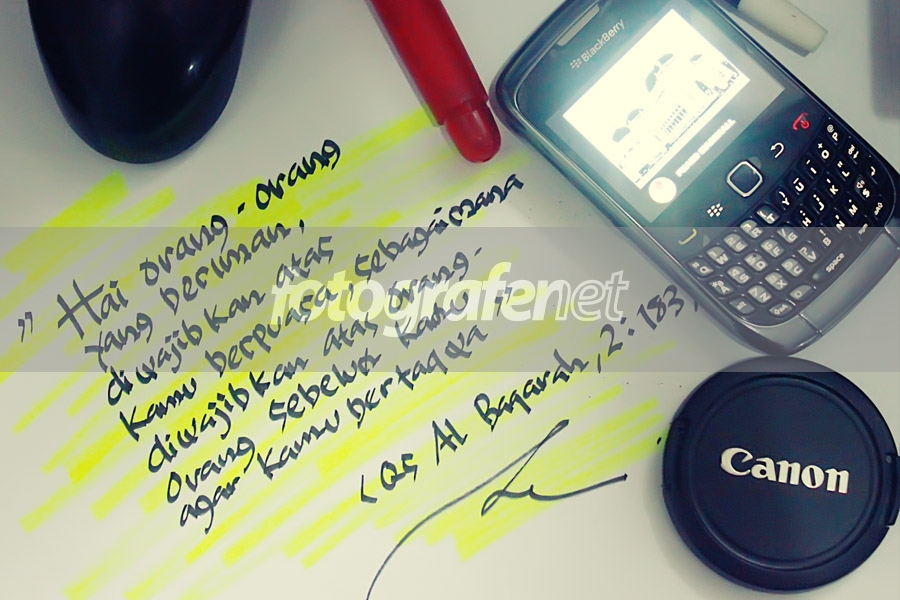 BlackBerry
" Hai orang-orang
yang beriman,
diwajibkan atas
kamu berpuasa sebagaimana
diwajibkan atas orang-
orang sebelum kamu
agar kamu bertaqwa "
(QS Al Baqarah, 2:183)
fotografenet
space
Canon